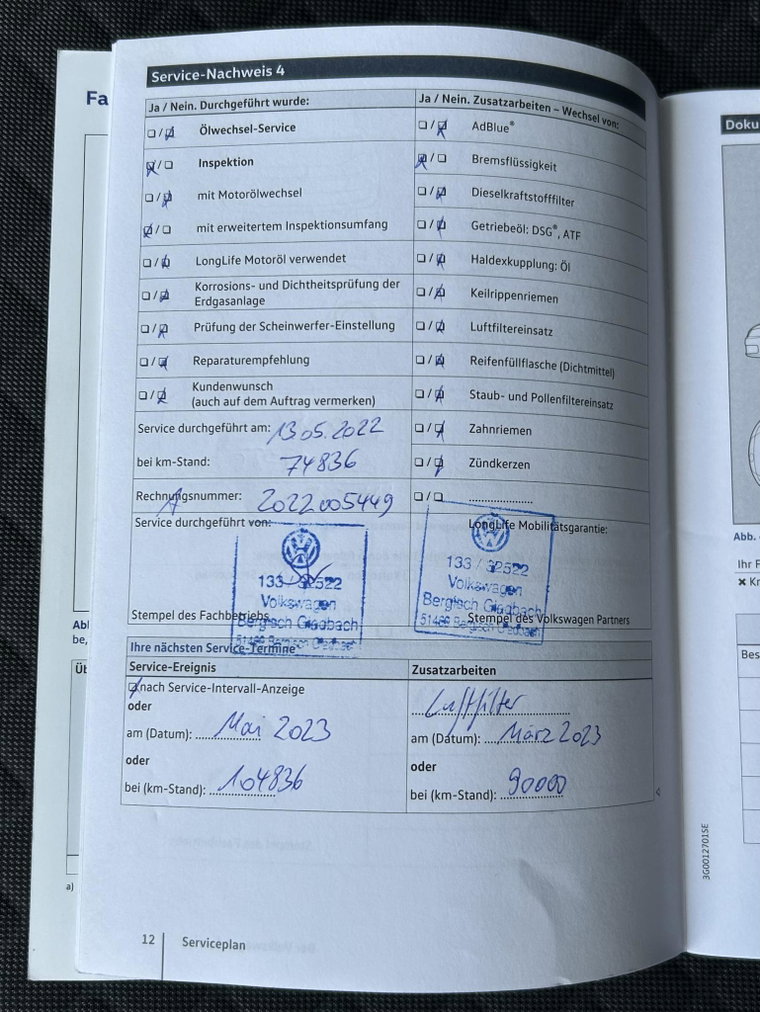 Fa
Service-Nachweis 4
Ja / Nein. Durchgeführt wurde:
Ölwechsel-Service
Inspektion
mit Motorölwechsel
mit erweitertem Inspektionsumfang
LongLife Motoröl verwendet
Korrosions- und Dichtheitsprüfung der
Erdgasanlage
Prüfung der Scheinwerfer-Einstellung
Reparaturempfehlung
Kundenwunsch
(auch auf dem Auftrag vermerken)
Ja / Nein. Zusatzarbeiten – Wechsel von:
AdBlue®
Bremsflüssigkeit
Dieselkraftstofffilter
Getriebeöl: DSG®, ATF
Haldexkupplung: Öl
Keilrippenriemen
Luftfiltereinsatz
Reifenfüllflasche (Dichtmittel)
Staub- und Pollenfiltereinsatz
Zahnriemen
Zündkerzen
Service durchgeführt am: 13.05.2022
bei km-Stand: 74836
Rechnungsnummer: 2022005449
Service durchgeführt von:
133 / 32522
Volkswagen
Bergisch Gladbach
Stempel des Fachbetriebs
LongLife Mobilitätsgarantie:
133 / 32522
Volkswagen
Bergisch Gladbach
51469 Bergisch Gladbach
Stempel des Volkswagen Partners
Ihre nächsten Service-Termine
Service-Ereignis
nach Service-Intervall-Anzeige
oder
am (Datum): Mai 2023
oder
bei (km-Stand): 104836
Zusatzarbeiten
Luftfilter
am (Datum): März 2023
oder
bei (km-Stand): 90000
12 Serviceplan
Abl
be,
Üt
a)
Doku
Abb.
Ihr F
✖ Kr
Bes
3G0012701SE